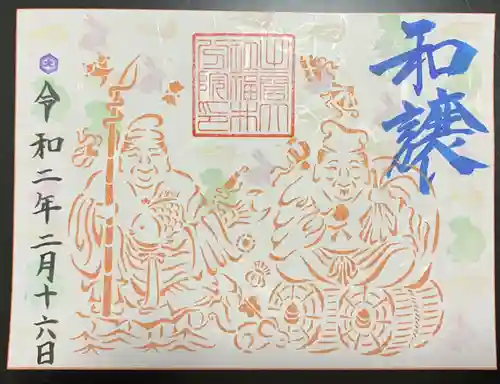 和譲
令和二年二月十六日